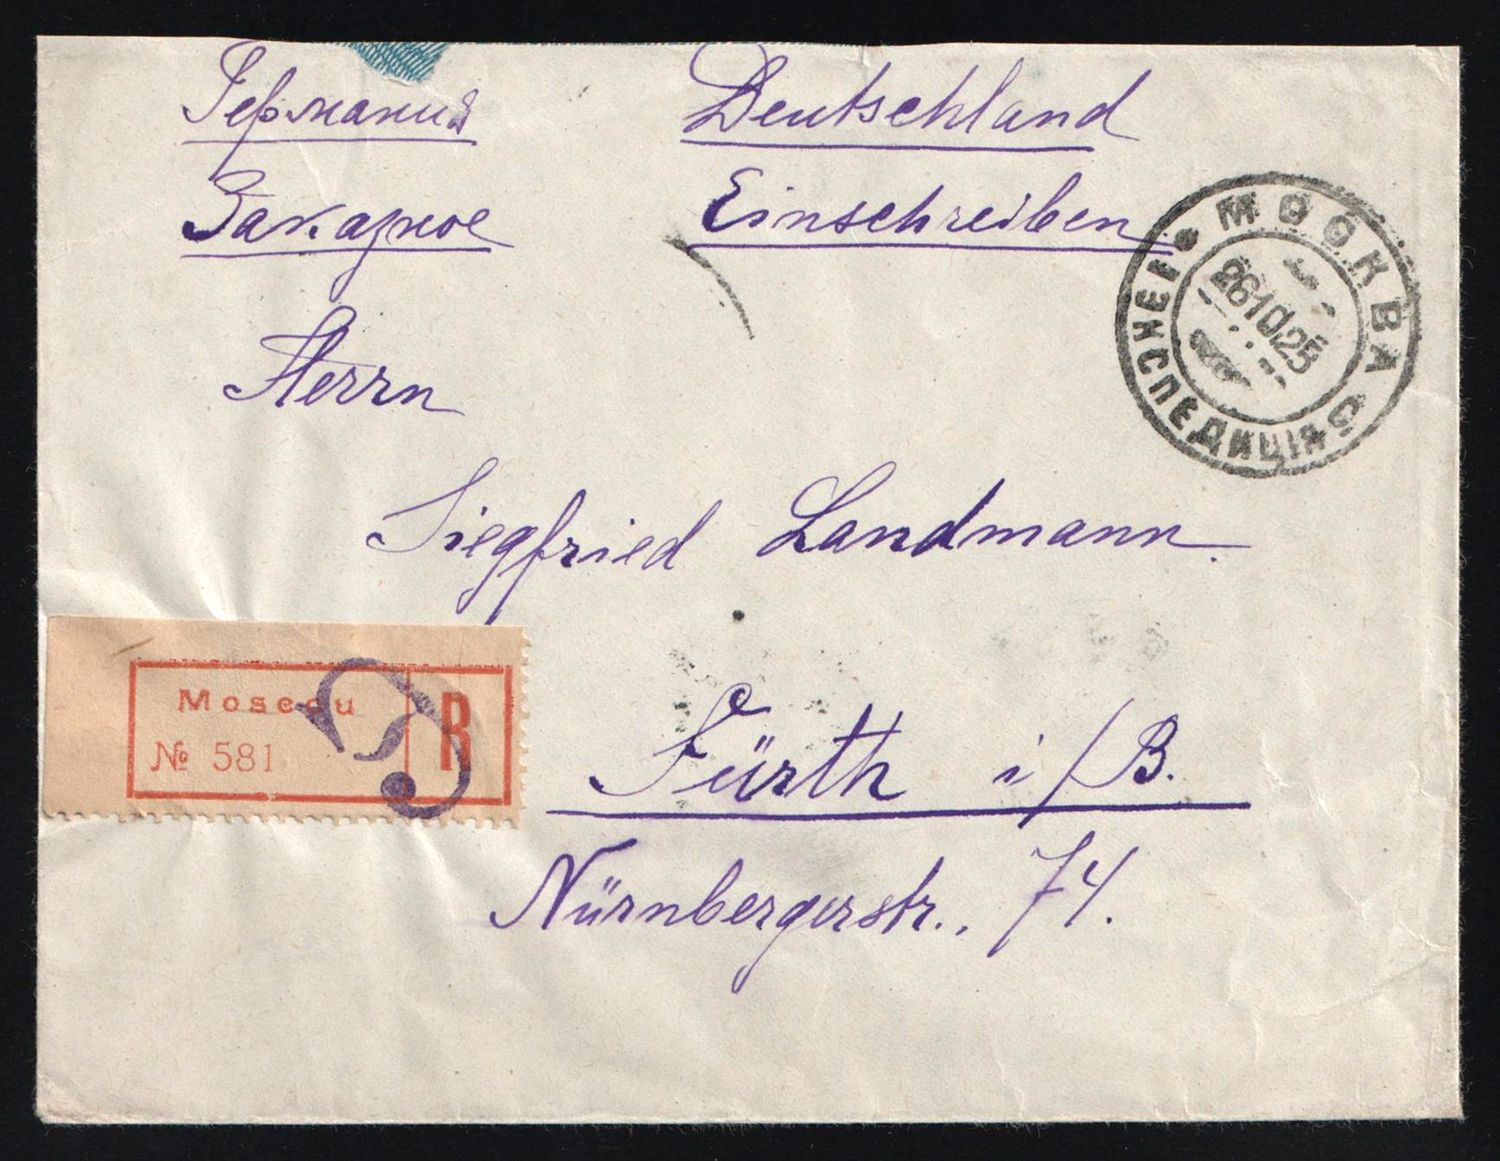 Германия
Deutschland
Заказное
Einschreiben
Herrn
Siegfried Landmann.
Fürth i/B.
Nürnbergerstr., 74.
Moscou
R
№ 581
МОСКВА
26 10 25
ЭКСПЕДИЦІЯ